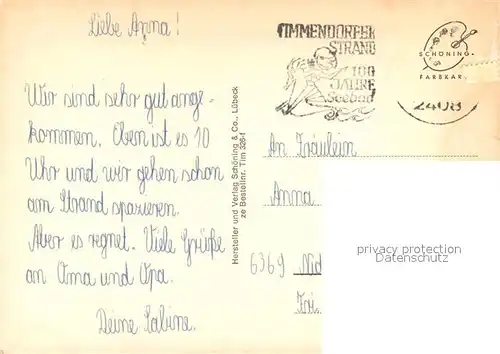 Liebe Anna!
Wir sind sehr gut ange-
kommen. Eben ist es 10
Uhr und wir gehen schon
am Strand spazieren.
Aber es regnet. Viele Grüße
an Oma und Opa.
Deine Sabine.
Hersteller und Verlag Schöning & Co., Lübeck
ze Bestellnr. Tim 325 f
TIMMENDORFER
STRAND
100
JAHRE
Seebad
SCHÖNING-
FARBKAR
An Fräulein
Anna
6369 Nid
privacy protection
Datenschutz